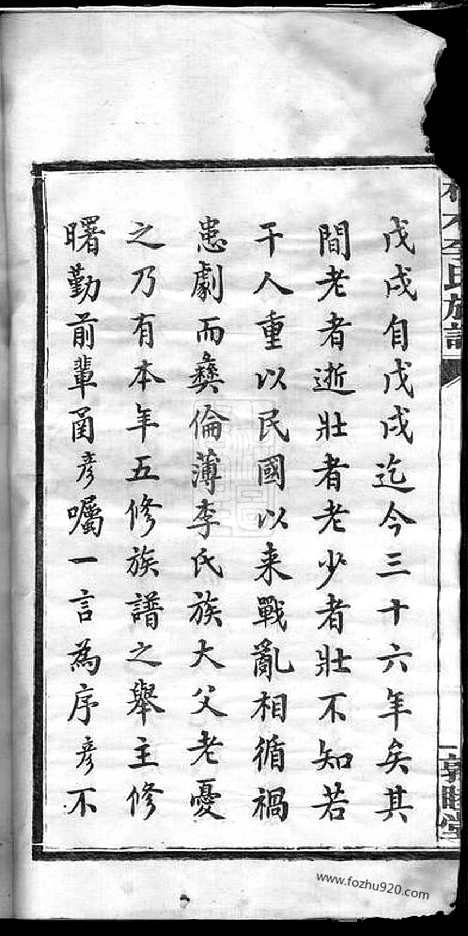 戊戌自戊戌迄今三十六年矣其
間老者逝壯者老少者壯不知若
干人重以民國以来戰亂相循禍
患劇而彞倫薄李氏族大父老憂
之乃有本年五修族譜之舉主修
曙勤前輩甭彦囑一言為序彦不
李氏族譜
敦睦堂
www.fozhu920.com